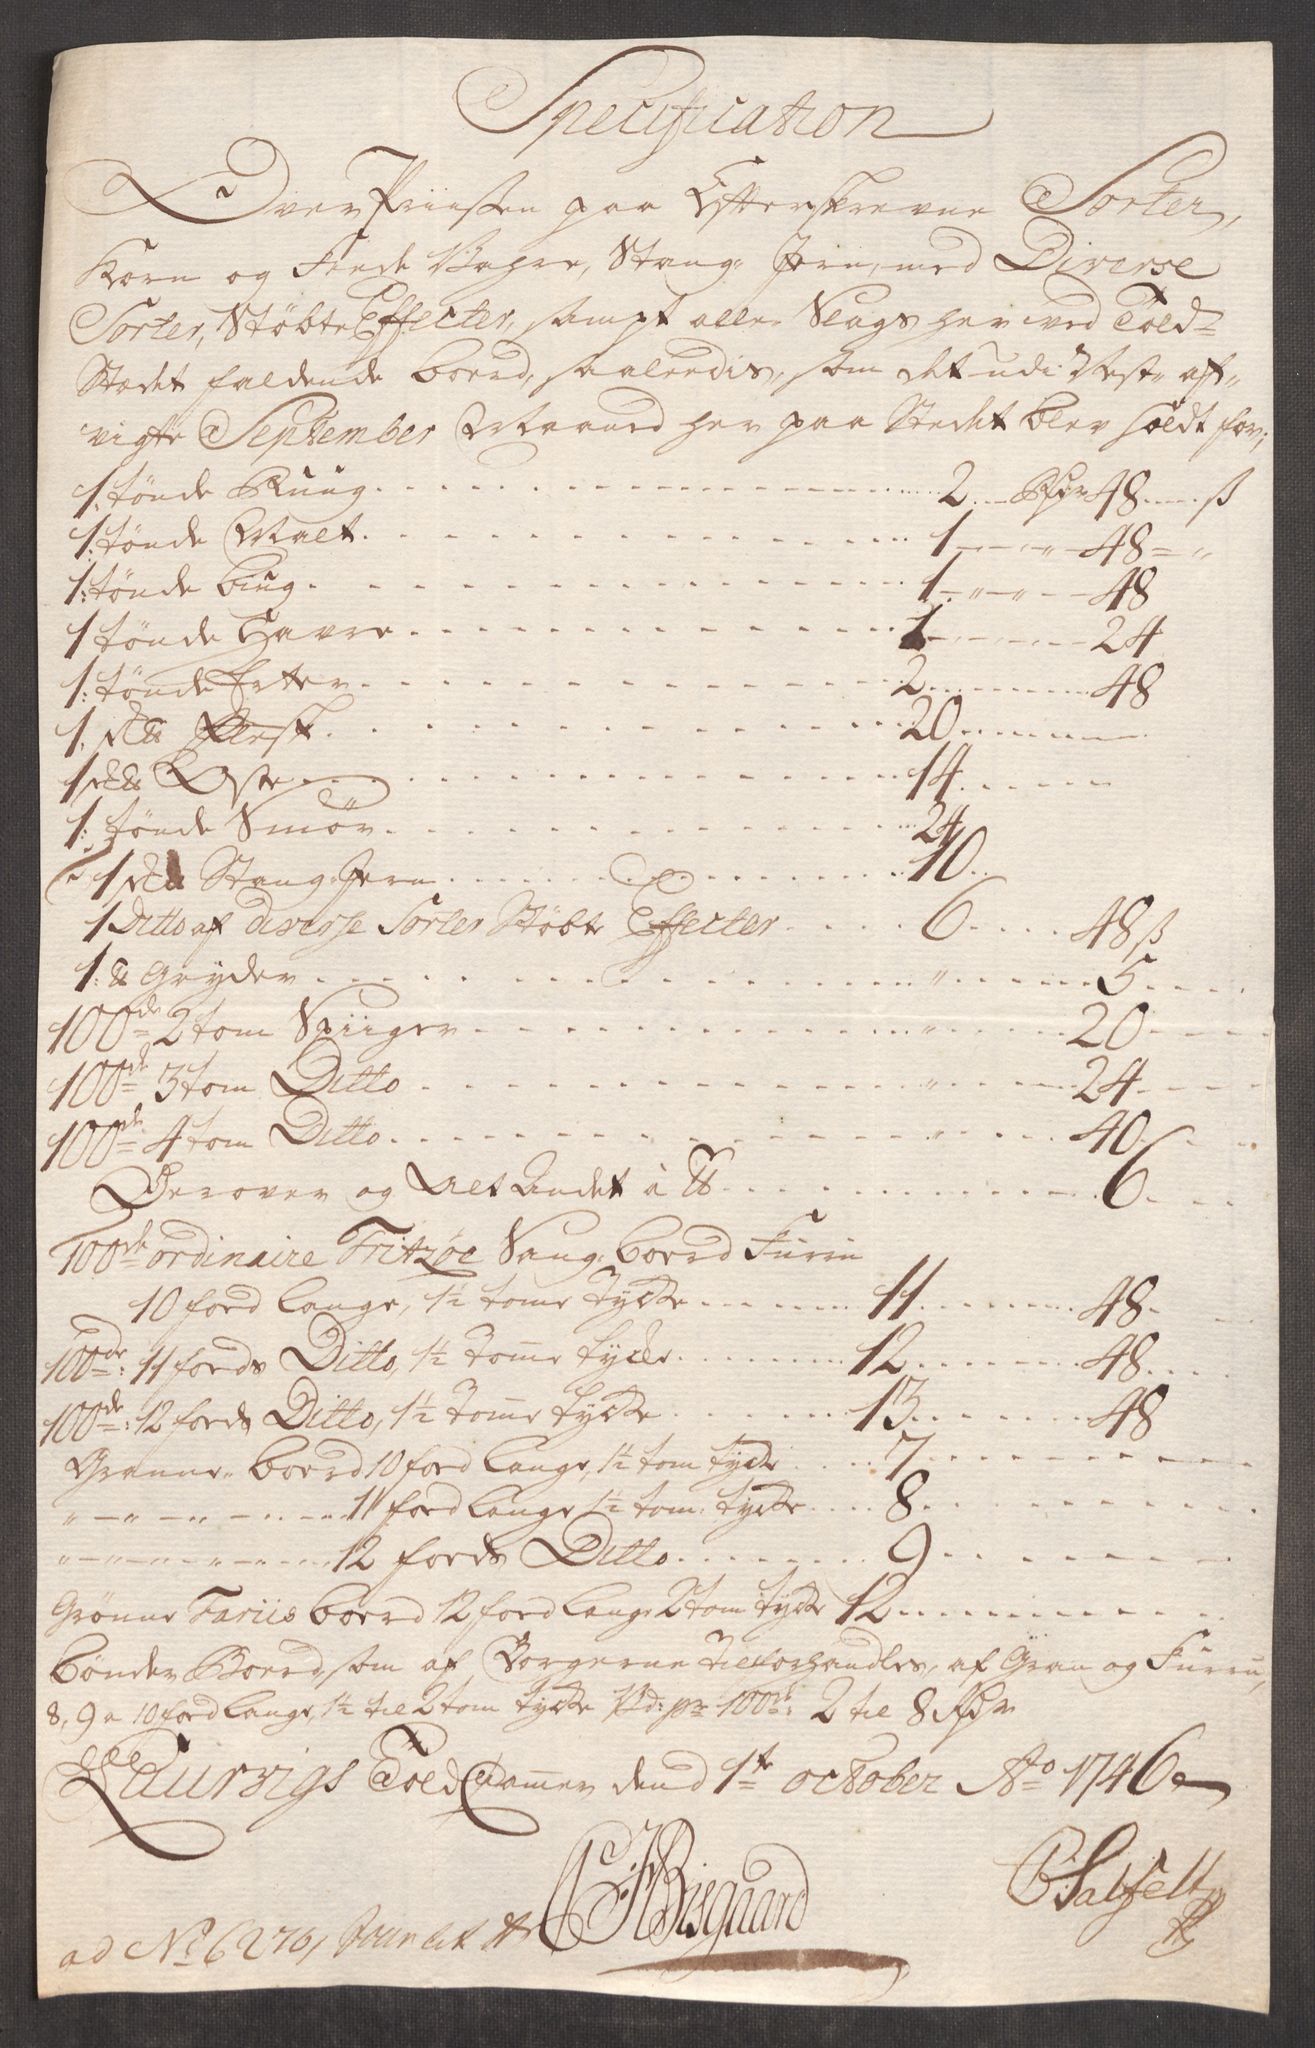 Specification
Over Priissen paa Efterskrevne Sorter,
Korn og Fede Vahre, Stang Jern, med Diverse
Sorter, Støbte Effecter, sampt alle Slags her ved Told=
Stædet faldende boerd, saaleedis, som det udi Nest af=
vigte September Maaned her paa Stedet blev holdt for;
1 tönde Ruug 2 Rdr 48 ß
1: tönde Malt 1 " 48 "
1: tönde Biug 1 " 48
1 tönde Havre 1 24
1: tönde Erter 2 48
1. Sk℔ Flesk 20
1 Sk℔ Oste 14
1: tönde Smör 24
1 Sk℔ Stang Jern 10
1 Ditto af diverse Sorter Støbte Effecter 6 48 ß
1: ℔ Gryder " 5
100de 2 tom Spiiger " 20
100de 3 tom Ditto " 24
100de 4 tom Ditto " 40
Derover og Alt Andet à ℔ 6
100de ordinaire Fritzöe Saug boerd Furru
10 foed lange, 1½ tome tycke 11 48
100de: 11 foeds Ditto, 1½ Tome tycke 12 48
100de: 12 foeds Ditto, 1½ Tome tycke 13 48
Granne boerd 10 foed lange, 1½ tom tycke 7
" " " 11 foed lange 1½ tom: tycke 8
" " " 12 foeds Ditto 9
Grönne boerd 12 foed lange 2 tom tycke 12
bönder Boerd, som af Borgerne Tilforhandles, af Gran og Furru,
8, 9 a 10 foed lange, 1½ til 2 tom tycke pr 100de: 2 til 8 Rdr
Laurvigs Told Cammer dend 1te October Ao 1746
CFBisgaard
Salfelt
ad No 6270